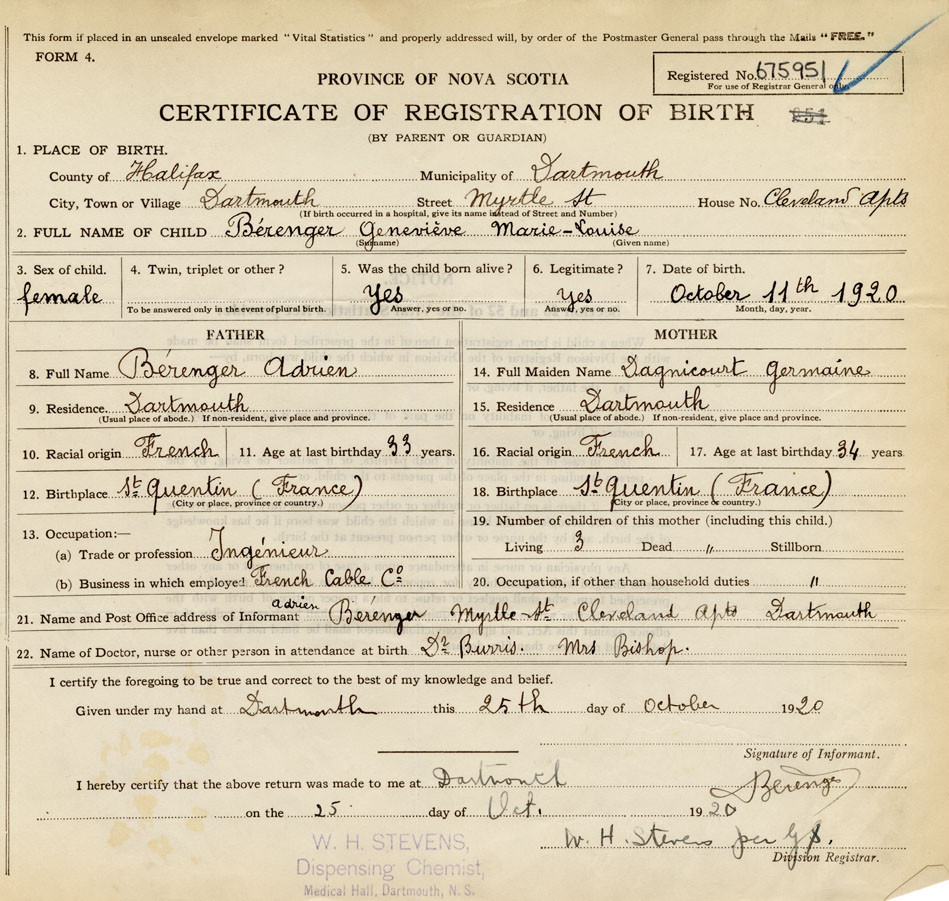 This form if placed in an unsealed envelope marked "Vital Statistics" and properly addressed will, by order of the Postmaster General pass through the Mails "FREE."
FORM 4.
Registered No. 675951
For use of Registrar General only.
PROVINCE OF NOVA SCOTIA
CERTIFICATE OF REGISTRATION OF BIRTH
(BY PARENT OR GUARDIAN)
1. PLACE OF BIRTH.
County of Halifax Municipality of Dartmouth
City, Town or Village Dartmouth Street Myrtle St House No. Cleveland Apts
(If birth occurred in a hospital, give its name instead of Street and Number)
2. FULL NAME OF CHILD Bérenger Geneviève Marie-Louise
(Surname) (Given name)
3. Sex of child. 4. Twin, triplet or other? 5. Was the child born alive? 6. Legitimate? 7. Date of birth.
female Yes Yes October 11th 1920
To be answered only in the event of plural birth. Answer, yes or no. Answer, yes or no. Month, day, year.
FATHER
8. Full Name Bérenger Adrien
9. Residence. Dartmouth
(Usual place of abode.) If non-resident, give place and province.
10. Racial origin French 11. Age at last birthday 33 years.
12. Birthplace St Quentin (France)
(City or place, province or country.)
13. Occupation:—
(a) Trade or profession Ingénieur
(b) Business in which employed French Cable Co
MOTHER
14. Full Maiden Name Dagnicourt Germaine
15. Residence Dartmouth
(Usual place of abode.) If non-resident, give place and province.
16. Racial origin French 17. Age at last birthday 34 years
18. Birthplace St Quentin (France)
(City or place, province or country.)
19. Number of children of this mother (including this child.)
Living 3 Dead " Stillborn
20. Occupation, if other than household duties "
21. Name and Post Office address of Informant adrien Bérenger Myrtle St Cleveland Apts Dartmouth
22. Name of Doctor, nurse or other person in attendance at birth Dr Burris. Mrs Bishop.
I certify the foregoing to be true and correct to the best of my knowledge and belief.
Given under my hand at Dartmouth this 25th day of October 1920
Signature of Informant.
Bérenger
I hereby certify that the above return was made to me at Dartmouth
on the 25 day of Oct. 1920
W. H. Stevens per
Division Registrar.
W. H. STEVENS,
Dispensing Chemist,
Medical Hall, Dartmouth, N. S.